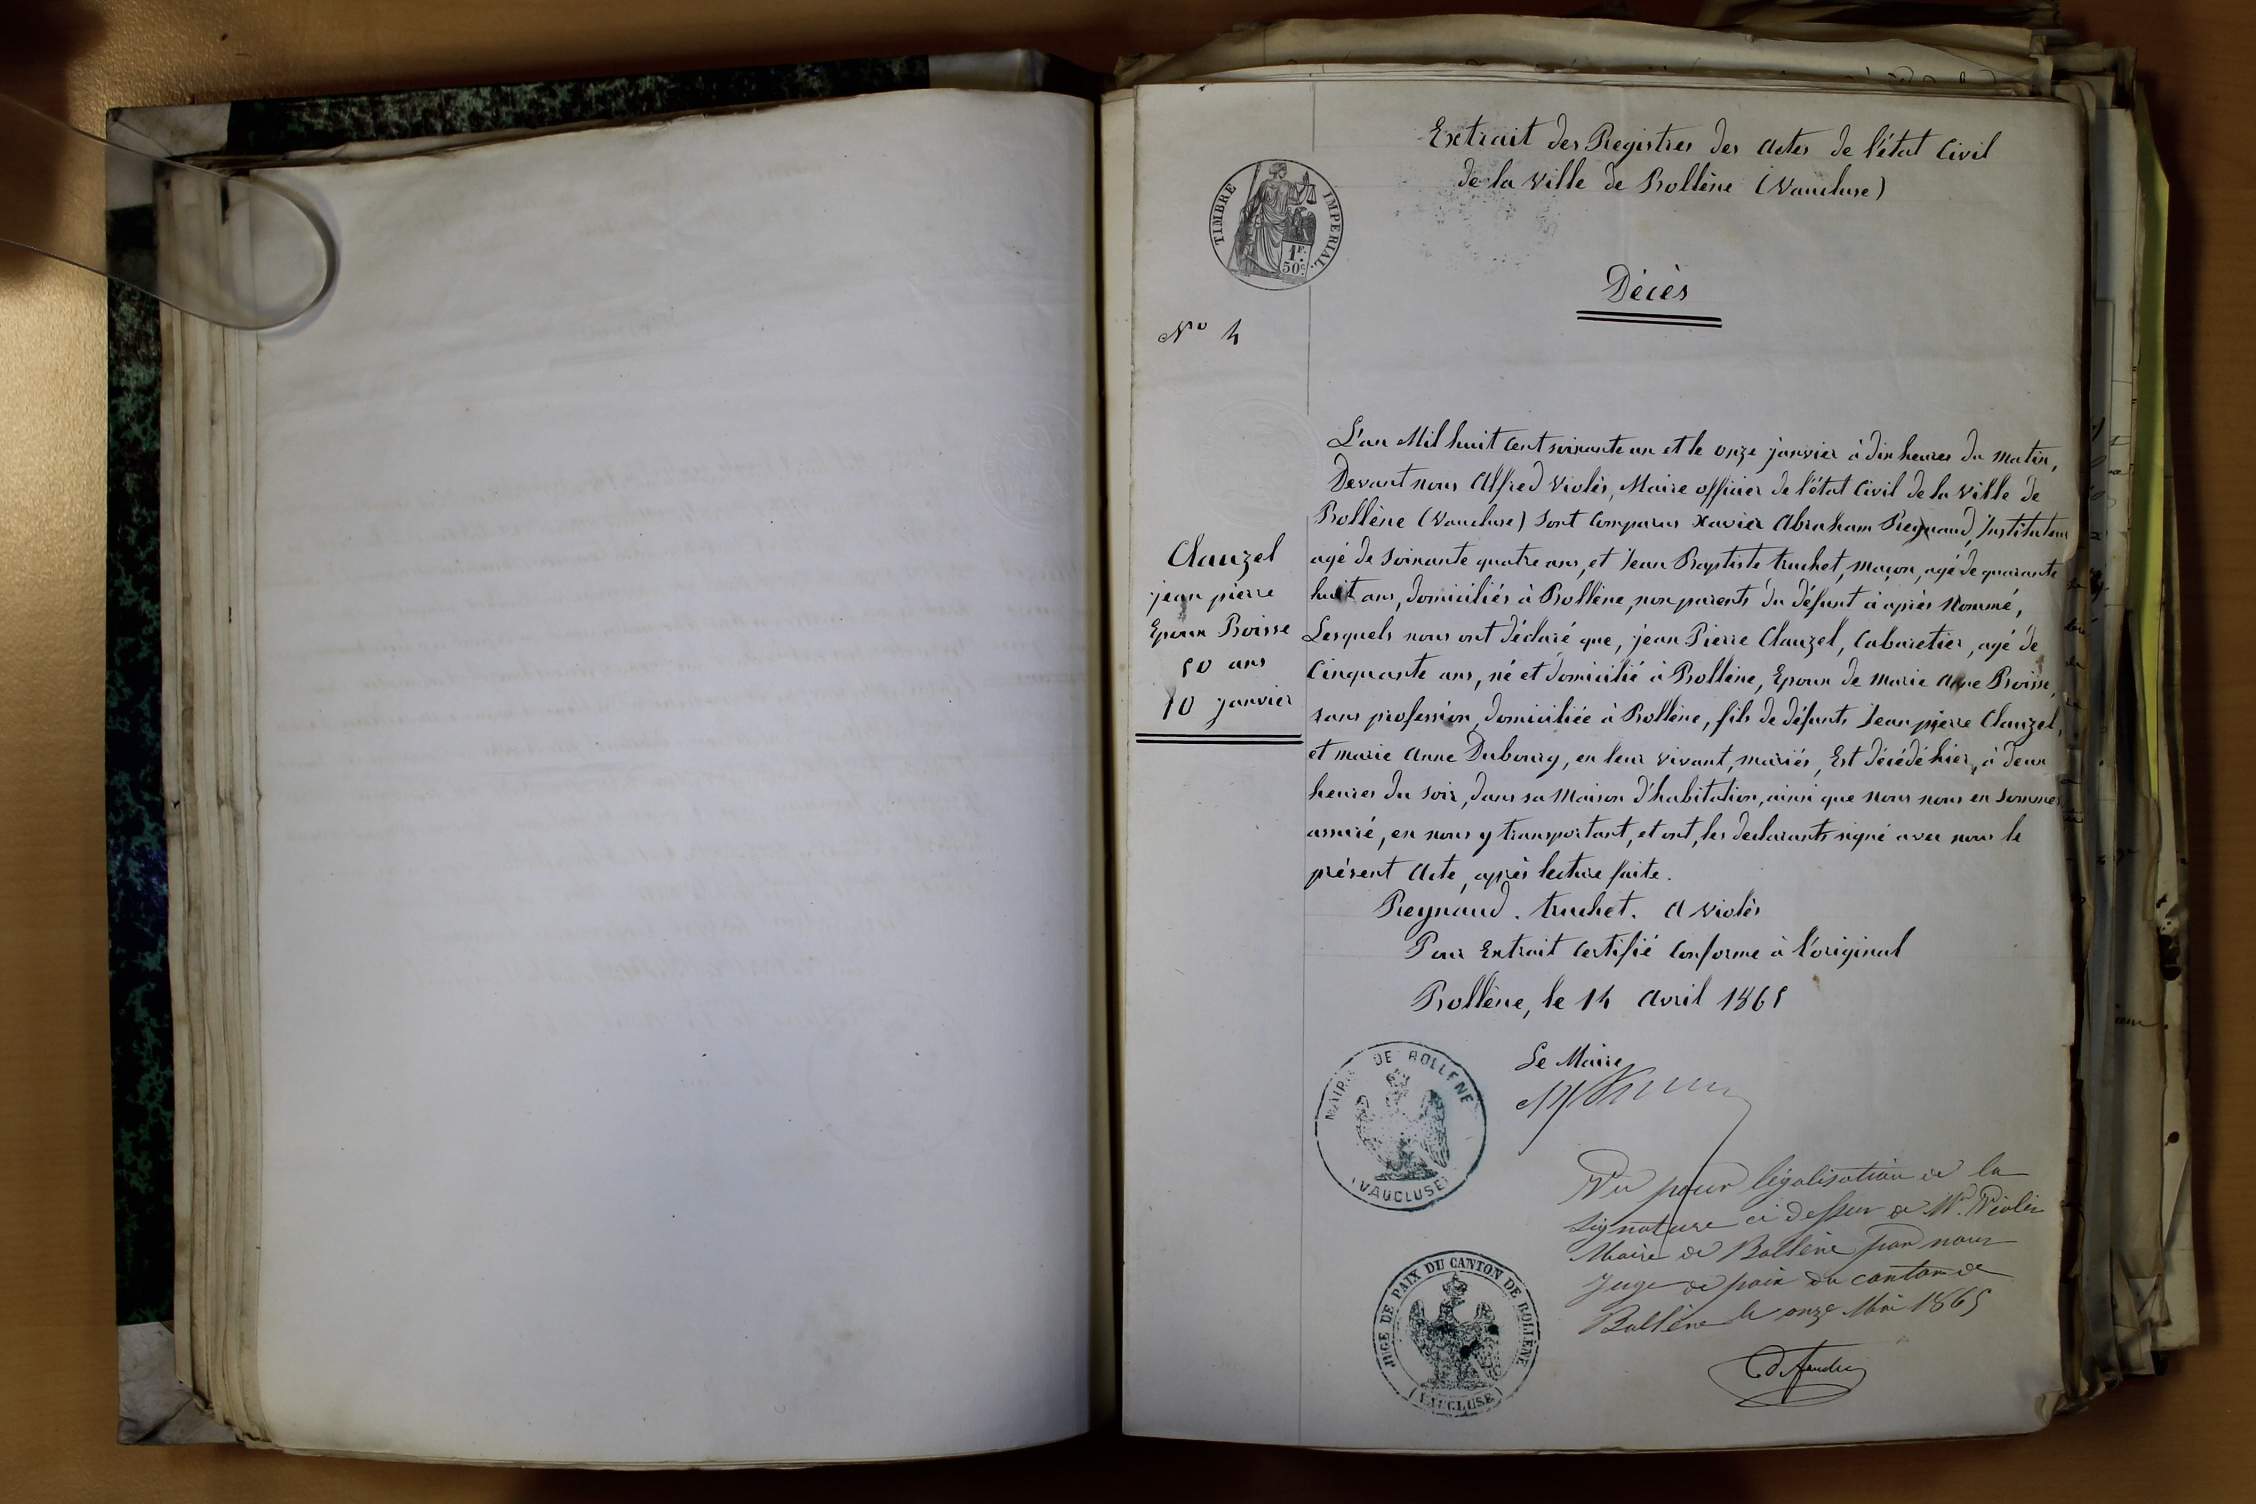 Extrait des Registres des actes de l'état Civil
de la Ville de Bollène (Vaucluse)
TIMBRE IMPERIAL.
1F.
50c.
Décès
No 4
L'an Mil huit Cent soixante un et le onze janvier à dix heures du matin,
Devant nous Alfred Violès, Maire officier de l'état Civil de la Ville de
Bollène (Vaucluse) sont Comparus Xavier Abraham Reynaud, Instituteur
agé de soixante quatre ans, et Jean Baptiste truchet, maçon, agé de quarante
huit ans, domiciliés à Bollène, non parents du défunt ci après Nommé,
Lesquels nous ont déclaré que, jean Pierre Clauzel, Cabaretier, agé de
Cinquante ans, né et domicilié à Bollène, Epoux de marie Anne Boisse,
sans profession, domiciliée à Bollène, fils de défunts Jean pierre Clauzel,
et marie Anne Dubourg, en leur vivant, mariés, Est décédé hier, à deux
heures du soir, dans sa Maison d'habitation, ainsi que nous nous en sommes
assuré, en nous y transportant, et ont, les declarants signé avec nous le
présent Acte, après lecture faite.
Clauzel
jean pierre
Epoux Boisse
50 ans
10 janvier
Reynaud. truchet. A Violès
Pour Extrait Certifié Conforme à l'original
Bollène, le 14 Avril 1865
Le Maire
MAIRIE DE BOLLENE
(VAUCLUSE)
Vu pour légalisation de la
signature ci dessus de Mr. Violès
Maire de Bollène par nous
Juge de paix du canton de
Bollène le onze Mai 1865
JUGE DE PAIX DU CANTON DE BOLLÈNE
(VAUCLUSE)